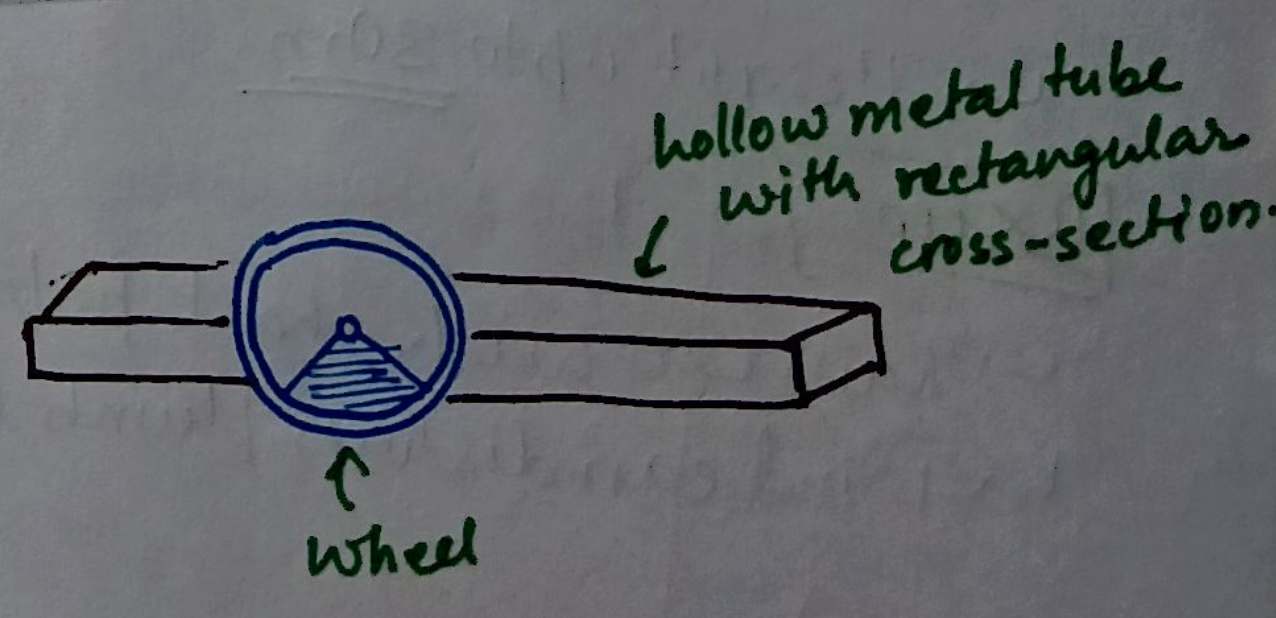 hollow metal tube
with rectangular
cross-section.
wheel